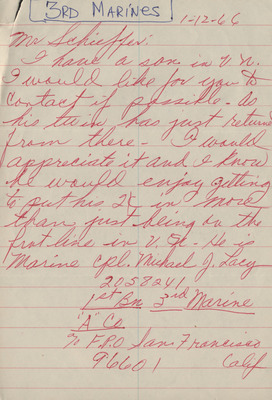 3RD MARINES
1-12-66
Mr Schieffer:
I have a son in V.N.
I would like for you to
contact if possible - As
his twin has just return
from there - I would
appreciate it and I know
he would enjoy getting
to put his 2¢ in more
than just being on the
front line in V.N. He is
Marine Cpl. Michael J. Lacy
2058241
1st Bn 3rd Marine
"A" Co.
% F.P.O San Francisco
96601 Calif